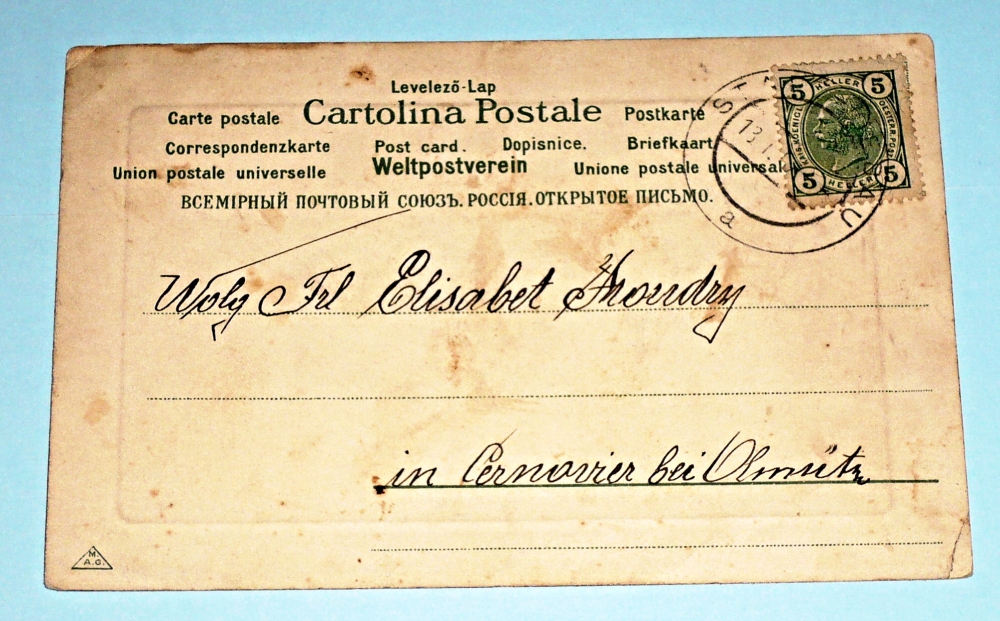 Levelező-Lap
Carte postale Cartolina Postale Postkarte
Correspondenzkarte Post card. Dopisnice. Briefkaart
Union postale universelle Weltpostverein Unione postale universale
ВСЕМІРНЫЙ ПОЧТОВЫЙ СОЮЗЪ. РОССІЯ. ОТКРЫТОЕ ПИСЬМО.
5 HELLER 5
KAIS. KOENIGL. OESTERR. POST
5 HELLER 5
13
a
Wolg Frl Elisabet
in Cernovier bei Olmütz
M.
A.G.